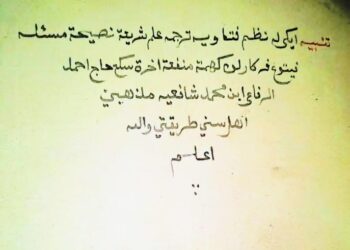 تنبيه ايكي له نظم فتاويه ترجمه علم شريعة نصيحة مسئله
فيتوع فركارلن كهمة منفعة اخرة سكع حاج احمد
الرفاعي ابن محمد شافعيه مذهبي
اهل سني طريقتي والله
اعلم